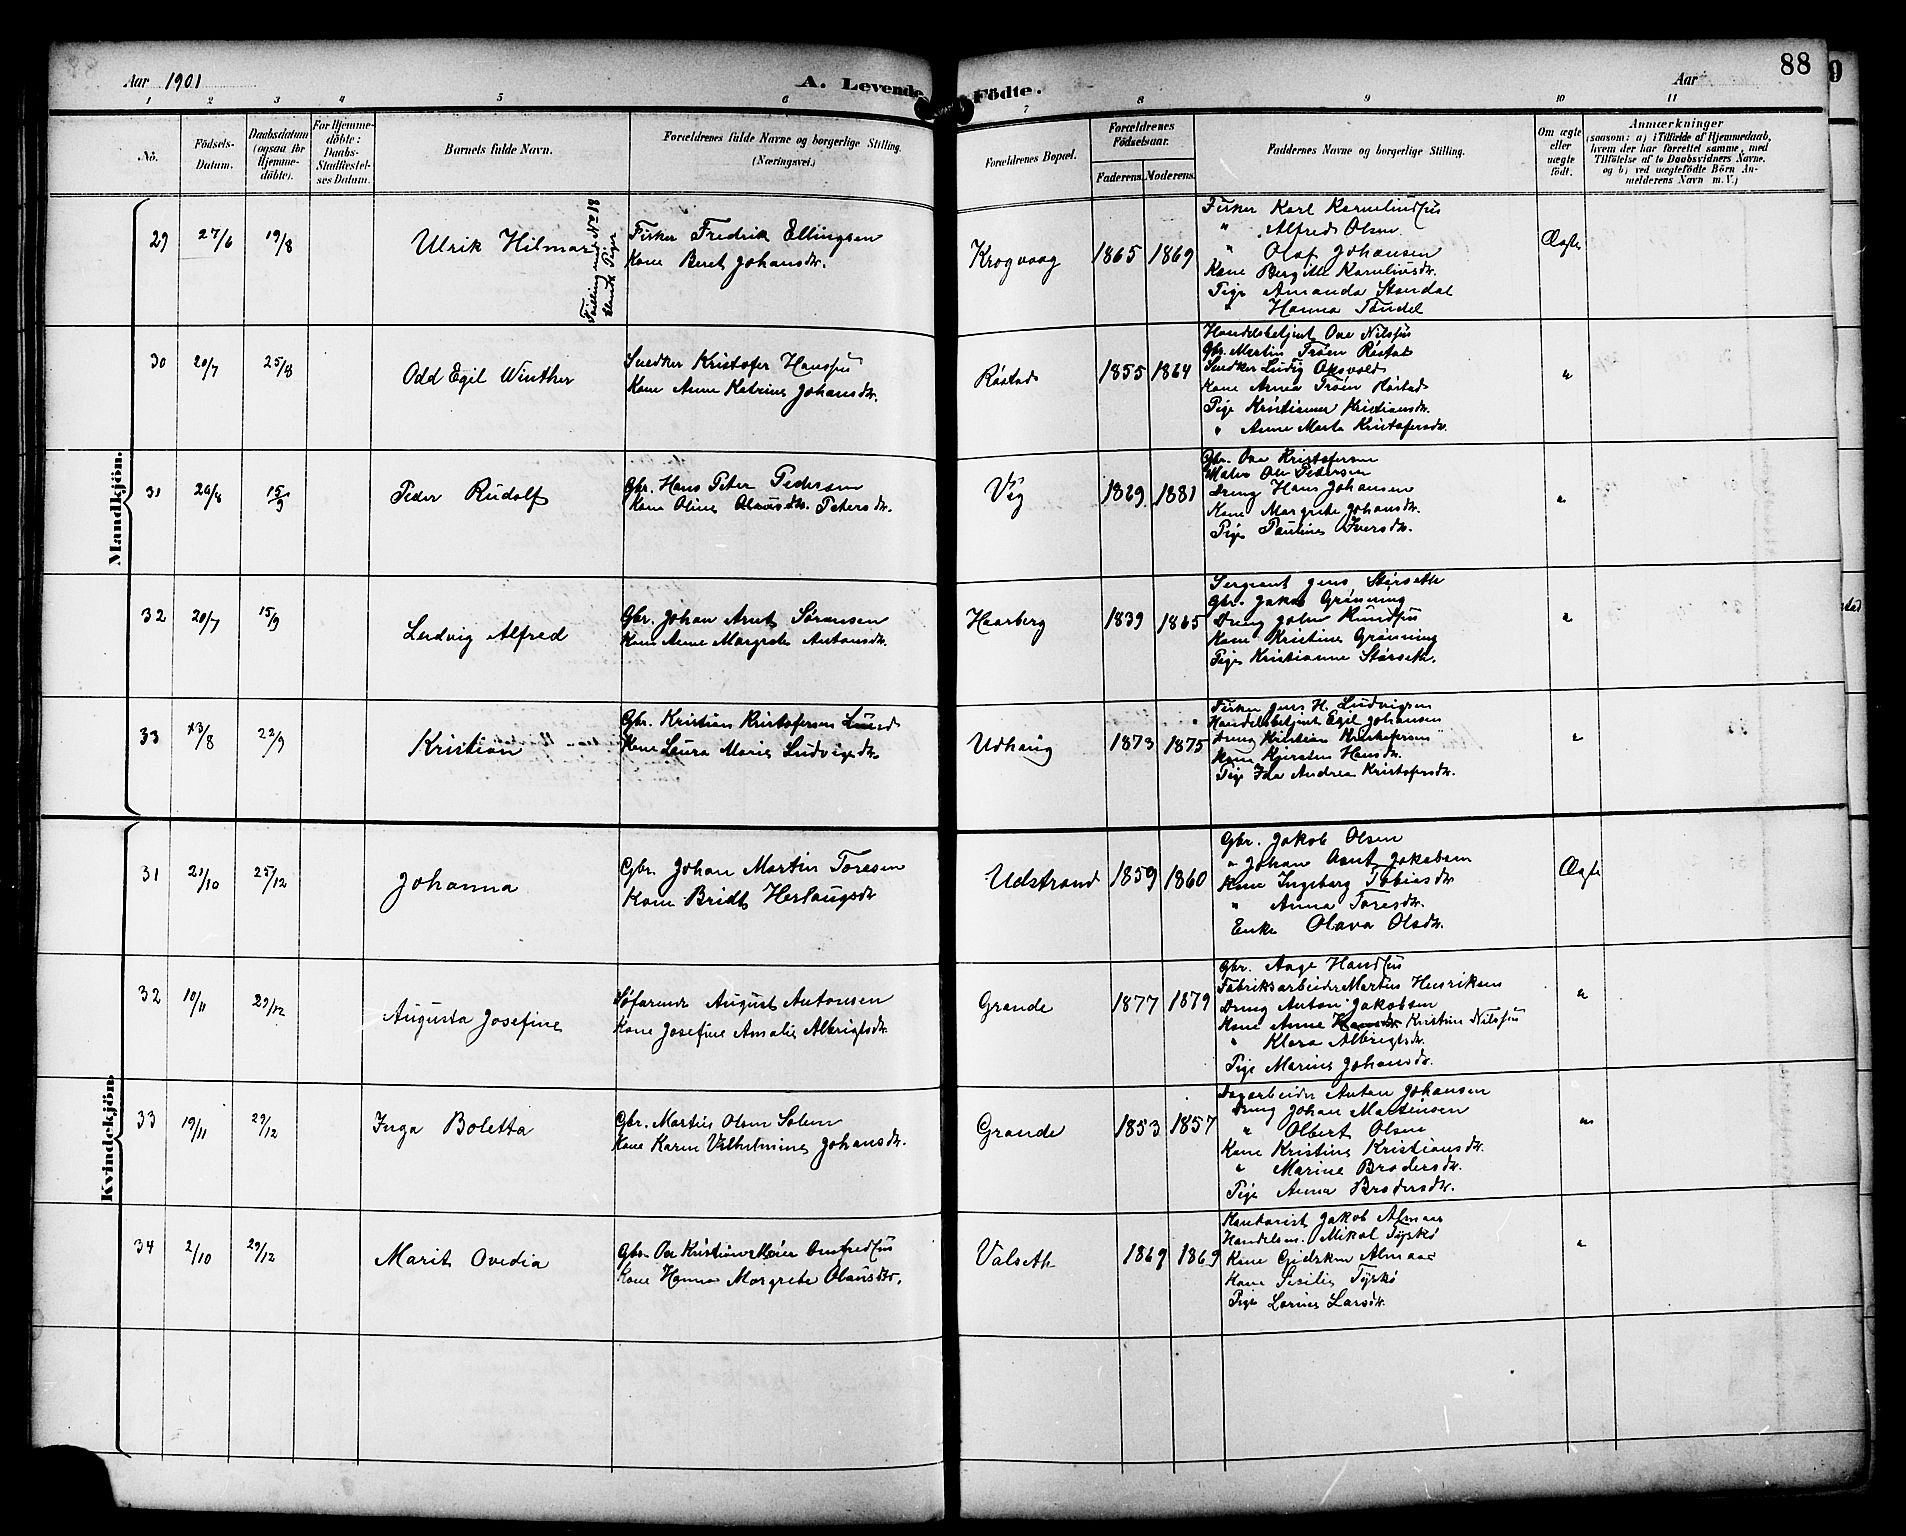 Aar 1901
A. Levende Födte.
Aar
88
1 2 3 4 5 6 7 8 9 10 11
No.
Födsels-Datum.
Daabsdatum (ogsaa for Hjemme-döbte).
For Hjemme-döbte: Daabs-Stadfæstel-ses Datum.
Barnets fulde Navn.
Forældrenes fulde Navne og borgerlige Stilling. (Næringsvei.)
Forældrenes Bopæl.
Forældrenes Födselsaar.
Faderens. Moderens.
Faddernes Navne og borgerlige Stilling.
Om ægte eller uægte födt.
Anmærkninger
(saasom: a) i Tilfælde af Hjemmedaab,
hvem der har forrettet samme, med
Tilföielse af to Daabsvidners Navne,
og b) ved uægtefödte Börn An-
melderens Navn m. V.)
Mandkjön.
29 27/6 19/8
Ulrik Hilmar
Tvilling med No 18 Piger
Fisker Fredrik Ellingsen
Kone Beret Johansdr.
Krogvaag 1865 1869
Fisker Karl Kornelius
" Alfred Olsen.
" Olaf Johansen
Kone Bergitte Korneliusdr.
Pige Amanda Standal
" Hanna Tondel
Ægte
30 20/7 25/8
Odd Egil Winther
Snedker Kristofer Hans
Kone Anne Katrine Johansdr.
Røstad 1855 1864
Handelsbetjent Ove Nils
Gbr. Martin Trøen Røstad
Snedker Ludvig Oksvold
Kone Anna Trøen Røstad
Pige Kristianna Kristiansdr.
" Anne Marta Kristofersdr.
"
31 26/8 15/9
Peder Rudolf
Gbr. Hans Peter Pedersen
Kone Oline Olausdr. Petersdr.
Vig 1829 1881
Gbr. Ove Kristofersen
Maler Ole Pedersen
Dreng Hans Johansen
Kone Margrete Johansdr.
Pige Pauline Iversdr.
"
32 20/7 15/9
Ludvig Alfred
Gbr. Johan Arnt Sørensen
Kone Anne Margrete Antonsdr.
Haarberg 1839 1865
Sergeant Jens Størseth
Gbr. Jakob Grønning
Dreng John Knud
Kone Kristine Grønning
Pige Kristianne Størseth.
"
33 23/8 22/9
Kristian
Gbr. Kristian Kristofersen Lund
Kone Laura Marie Ludvigsdr.
Udhaug 1873 1875
Fisker Jens H. Ludvigsen
Handelsbetjent Egil Johansen
Dreng Kristian Kristofersen
Kone Kjersten Hansdr.
Pige Ida Andrea Kristofersdr.
"
Kvindekjön.
31 21/10 25/12
Johanna
Gbr. Johan Martin Toresen
Kone Bridt Herlaugsdr.
Udstrand 1859 1860
Gbr. Jakob Olsen
" Johan Arnt Jakobsen
Kone Ingeborg Tobiasdr.
" Anna Toresdr.
Enke Olava Olsdr.
Ægte
32 10/11 29/12
Augusta Josefine
Søfarende August Antonsen
Kone Josefine Amalie Albrigtsdr.
Grande 1877 1879
Gbr. Aage Hans
Fabriksarbeider Martin Henriksen
Dreng Anton Jakobsen
Kone Anne Kristine Nils
" Klara Albrigtsdr.
Pige Marie Johansdr.
"
33 19/11 29/12
Inga Boletta
Gbr. Martin Olsen Solem
Kone Karen Vilhelmine Johansdr.
Grande 1853 1857
Dagarbeider Anton Johansen
Dreng Johan Martinsen
" Olbert Olsen
Kone Kristine Kristiansdr.
" Marine Brodersdr.
Pige Anna Brodersdr.
"
34 2/10 29/12
Marit Ovedia
Gbr. Ove Kristian Meier
Kone Hanna Margrete Olausdr.
Valseth 1869 1869
Kontorist Jakob Almaas
Handelsm. Mikal Tyskø
Kone Almaas
Kone Sesilie Tyskø
Pige Lorine Larsdr.
"